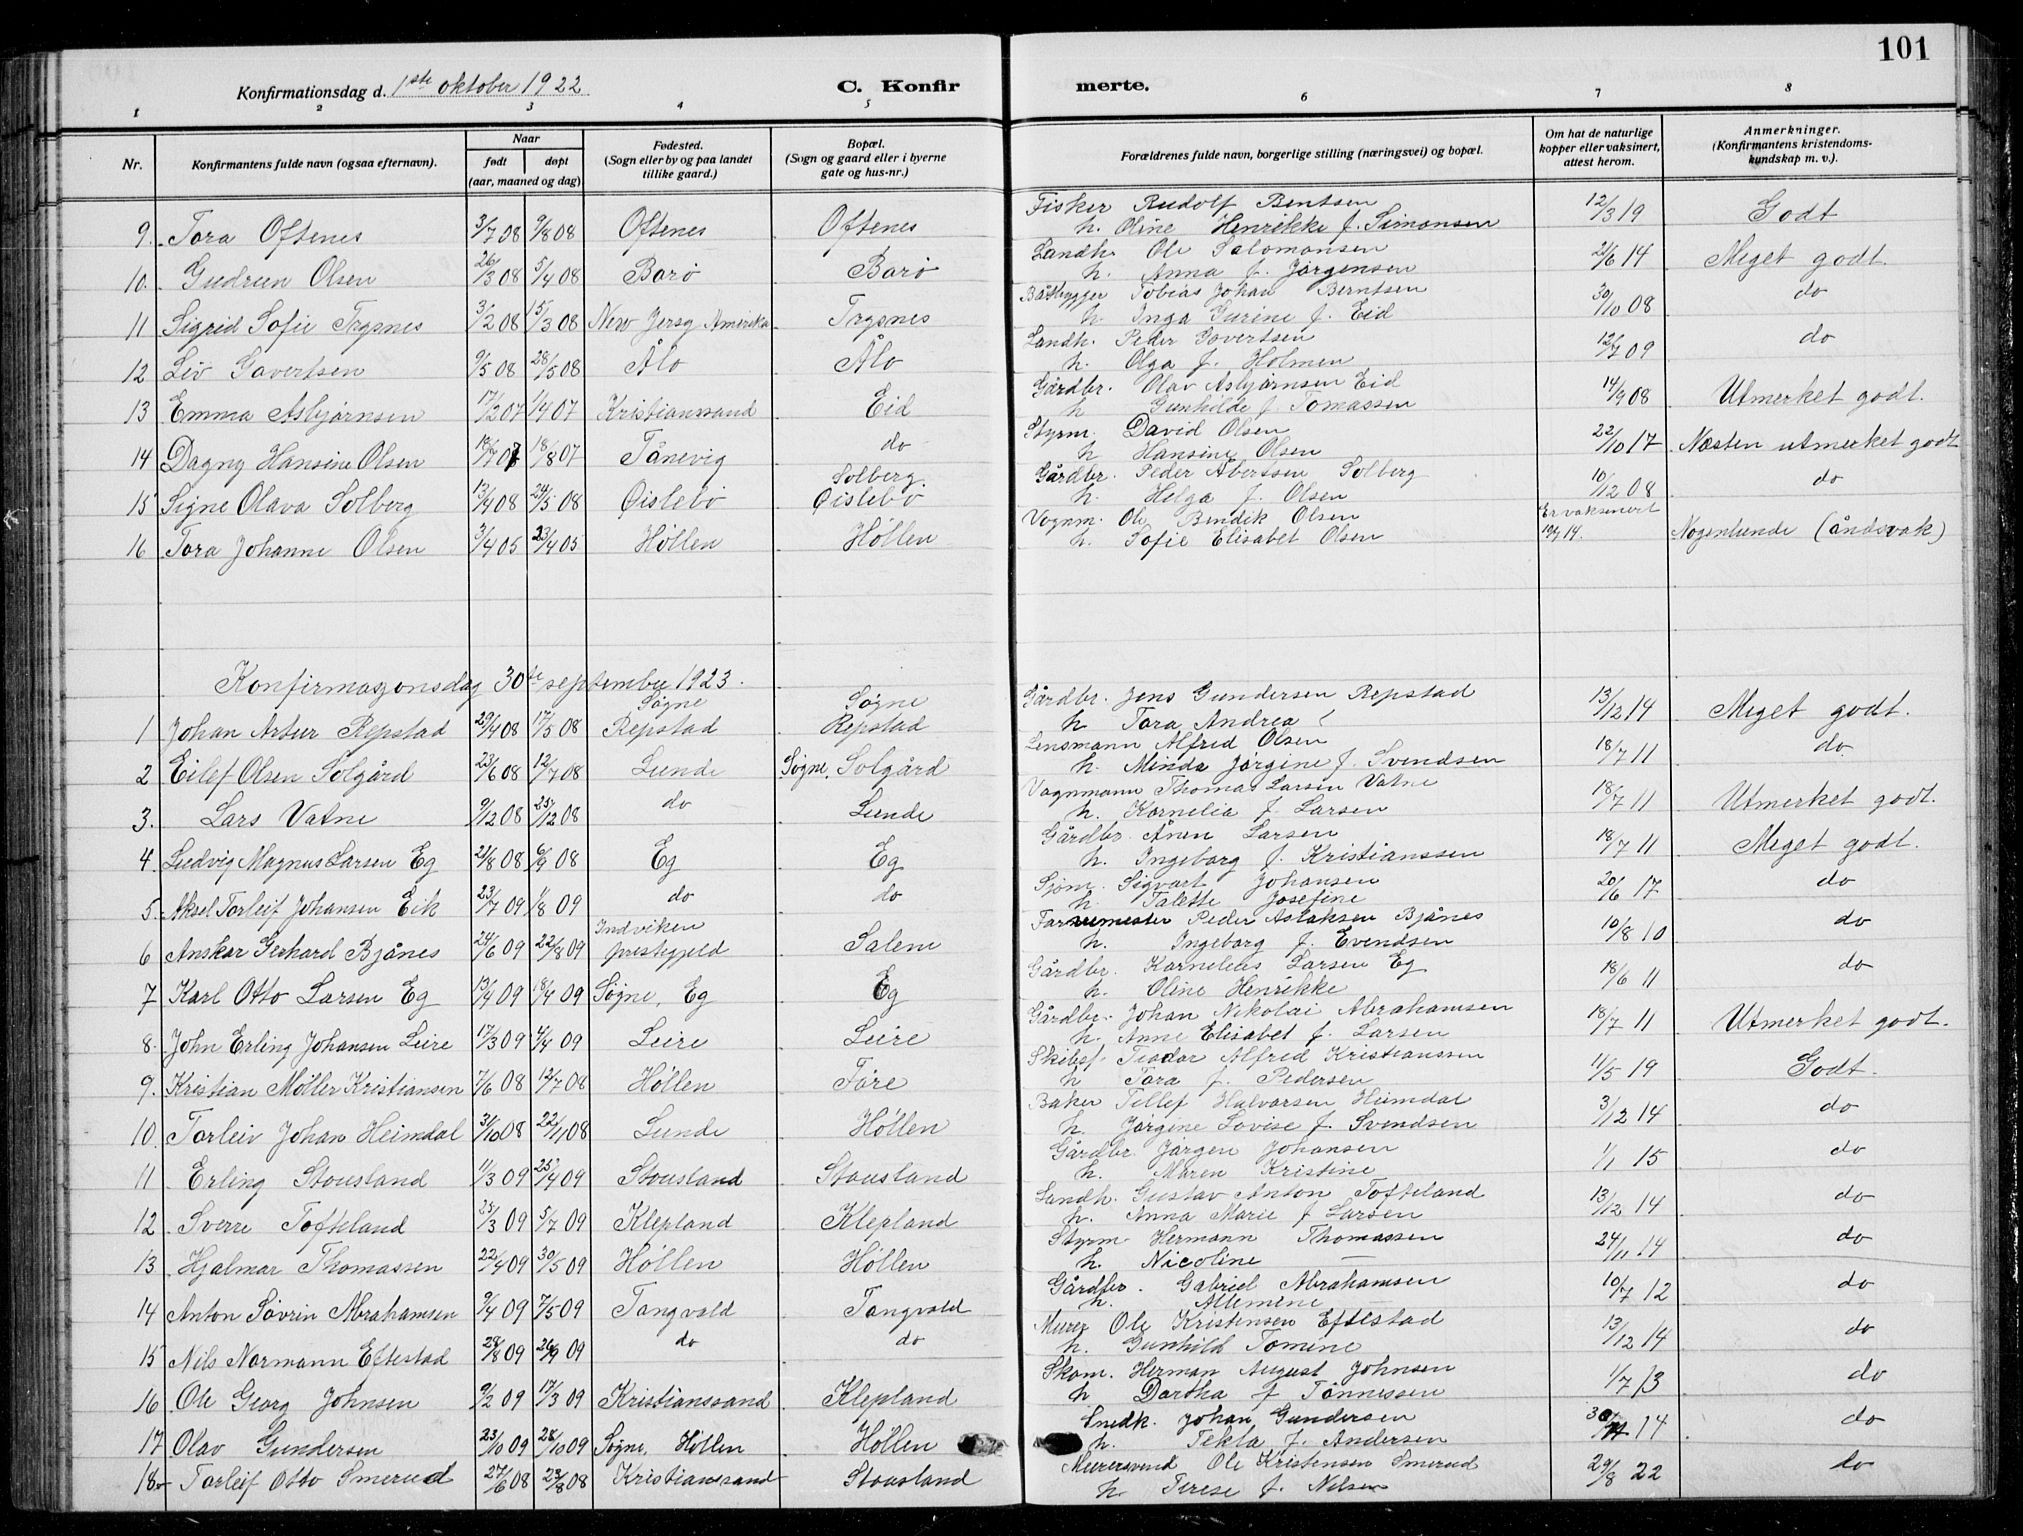 101
Konfirmationsdag d. 1ste oktober 1922 C. Konfirmerte.
1 2 3 4 5 6 7 8
Nr. Konfirmantens fulde navn (ogsaa efternavn). Naar født døpt (aar, maaned og dag) Fødested. (Sogn eller by og paa landet tillike gaard.) Bopæl. (Sogn og gaard eller i byerne gate og hus-nr.) Forældrenes fulde navn, borgerlige stilling (næringsvei) og bopæl. Om hat de naturlige kopper eller vaksinert, attest herom. Anmerkninger. (Konfirmantens kristendoms-kundskap m. v.).
9. Tora Oftenes 3/7 08 9/8 08 Oftenes Oftenes Fisker Rudolf Bentsen 12/3 19 Godt
h. Oline Henrikke f. Simonsen
10. Gudrun Olsen 26/3 08 5/4 08 Borø Borø Landh. Ole Salomonsen 2/6 14 Meget godt.
h. Anna f. Jørgensen
11 Sigrid Sofie Trysnes 3/2 08 15/3 08 New Jersy Amerika Trysnes Båtbygger Tobias Johan Berntsen 30/10 08 do
h. Inga Gurine f. Eid
12 Liv Govertsen 9/5 08 28/5 08 Ålo Ålo Landh. Peder Govertsen 12/7 09 do
h. Olga f. Holmen
13 Emma Asbjørnsen 17/2 07 1/4 07 Kristianssand Eid Gårdbr. Olav Asbjørnsen Eid 14/9 08 Utmerket godt.
h Gunhilde f. Tomassen
14 Dagny Hansine Olsen 18/7 07 18/8 07 Tånevig do Styrm. David Olsen 22/10 17 Næsten utmerket godt
h Hansine Olsen
15 Signe Olava Solberg 13/4 08 24/5 08 Øislebø Solberg. Øislebø Gårdbr. Peder Åbertsen Solberg 10/12 08 do
h. Helga f. Olsen
16 Tora Johanne Olsen 3/4 05 23/4 05 Høllen Høllen Vognm. Ole Bendik Olsen Er vaksinert 14. Nogenlunde (åndsvak)
h. Sofie Elisabet Olsen
Konfirmasjonsdag 30te september 1923.
1 Johan Artur Repstad 29/4 08 17/5 08 Søgne Repstad Søgne Repstad Gårdbr. Jens Gundersen Repstad 13/12 14 Meget godt.
h Tora Andrea
2 Eilef Olsen Solgård 23/6 08 12/7 08 Lunde Søgne, Solgård Lensmann Alfred Olsen 18/7 11 do
h. Minda Jørgine f. Svendsen
3. Lars Vatne 9/12 08 25/12 08 do Lunde Vognmann Thomas Larsen Vatne 18/7 11 Utmerket godt.
h. Kornelia f. Larsen
4 Ludvig Magnus Larsen Eg 21/8 08 6/9 08 Eg Eg Gårdbr. Ånen Larsen 18/7 11 Meget godt.
h. Ingeborg f. Kristianssen
5. Aksel Torleif Johansen Eik 23/7 09 1/8 09 do do Sjøm. Sigvart Johansen 20/6 17 do
h. Talette Josefine
6 Anskar Gerhard Bjånes 24/6 09 22/8 09 Indviken prestegjeld Salem Peder Aslaksen Bjånes 10/8 10 do
h. Ingeborg f. Evendsen
7 Karl Otto Larsen Eg 13/4 09 18/4 09 Søgne, Eg Eg Gårdbr. Kornelius Larsen Eg 18/6 11 do
h. Oline Henrikke
8. John Erling Johansen Leire 17/3 09 4/4 09 Leire Leire Gårdbr. Johan Nikolai Abrahamsen 18/7 11 Utmerket godt.
h. Anne Elisabet f. Larsen
9. Kristian Møller Kristiansen 7/6 08 12/7 08 Høllen Føre Skibsf. Teodor Alfred Kristianssen 11/5 19 Godt.
h Tora f. Pedersen
10. Torleiv Johan Heimdal 31/10 08 22/11 08 Lunde Høllen Baker Tellef Halvorsen Heimdal 3/12 14 do
h. Jørgine Lovise f. Svendsen
11 Erling Stousland 11/3 09 25/4 09 Stousland Stousland Gårdbr. Jørgen Johansen 1/1 15 do
h. Maren Kristine
12 Sverre Tofteland 25/3 09 5/7 09 Klepland Klepland Landh. Gustav Anton Tofteland 13/12 14 do
h. Anna Marie f Larsen
13 Hjalmar Thomassen 22/4 09 30/5 09 Høllen Høllen Styrm. Hermann Thomassen 24/11 14 do
h. Nicoline —
14 Anton Søvrin Abrahamsen 9/4 09 7/5 09 Tangvald Tangvald Gårdbr. Gabriel Abrahamsen 10/7 12 do
h. Allemine
15 Nils Normann Eftestad 28/8 09 26/9 09 do do Murer Ole Kristensen Eftestad 13/12 14 do
h. Gunhild Tomine
16 Ole Georg Johnsen 9/2 09 17/3 09 Kristianssand Klepland Skom. Herman August Johnsen 1/7 13 do
h Dortha f Tønnessen
17 Olav Gundersen 23/10 09 28/10 09 Søgne, Høllen Høllen Snedk. Johan Gundersen 14 do
h. Tekla f. Andersen
18 Torleif Otto Smerud 27/6 08 23/8 08 Kristianssand Stousland Murersvend Ole Kristensen Smerud 29/8 22 do
h. Terese f. Nilsen